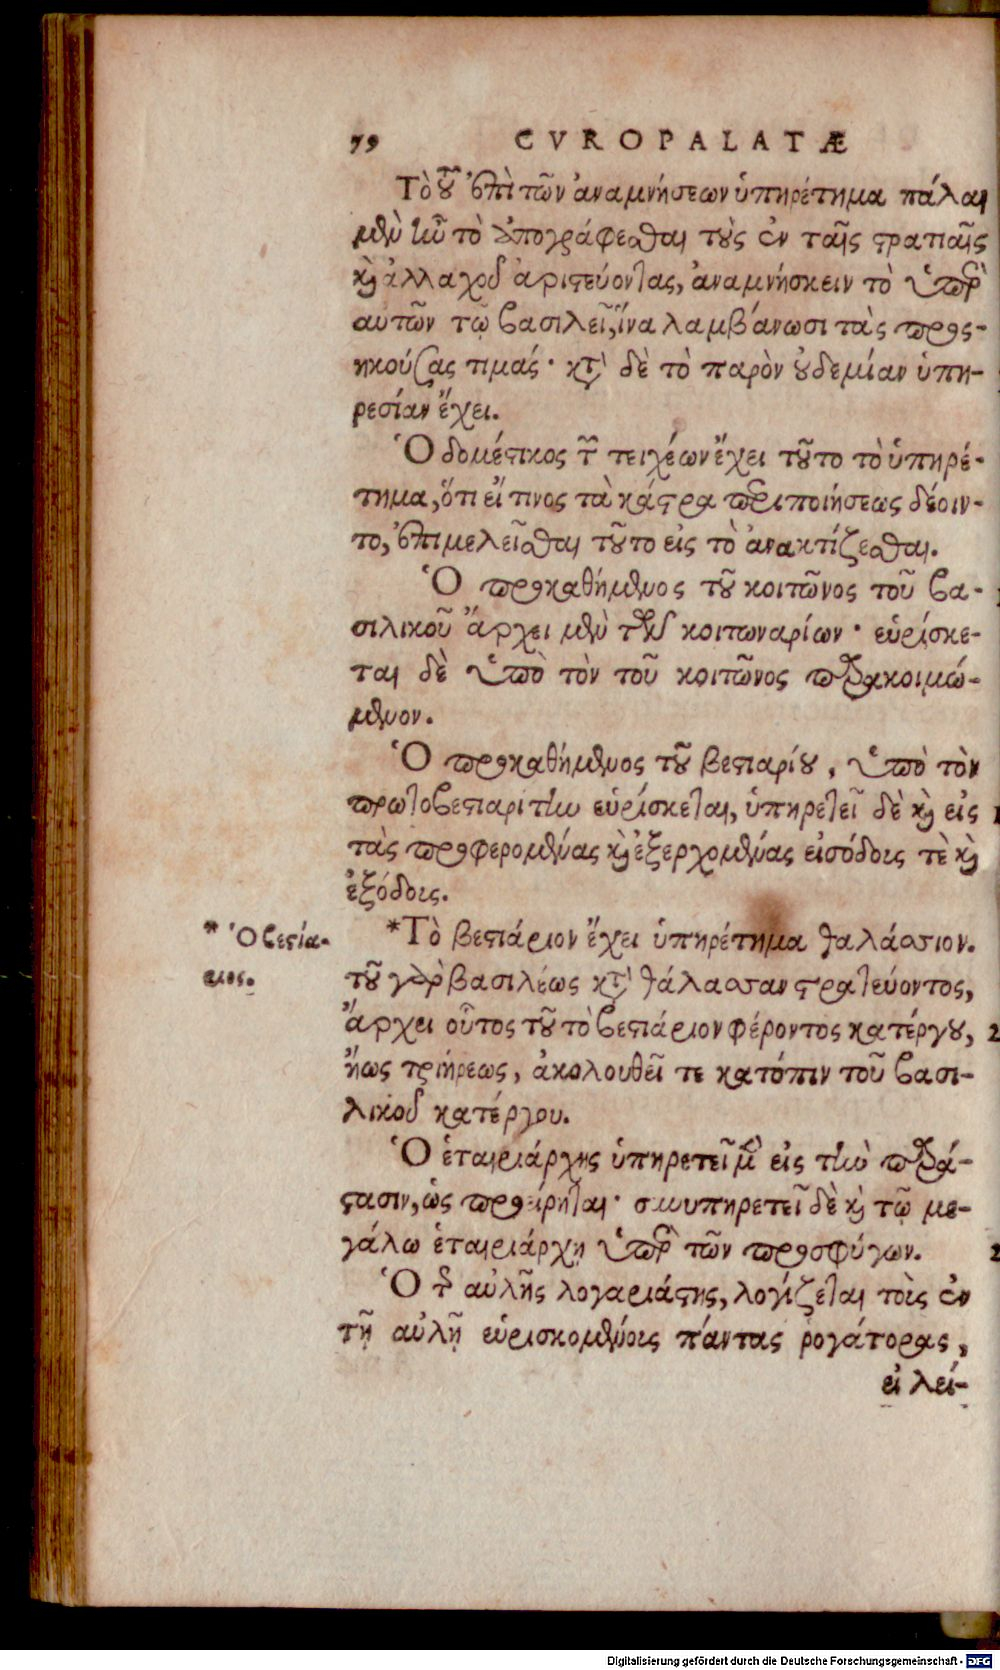 79 CVROPALATÆ
Τὸ τοῦ ἐπὶ τῶν ἀναμνήσεων ὑπηρέτημα πάλαι
μὲν ἦν τὸ ἀπογράφεσθαι τοὺς ἐν ταῖς στρατιαῖς
καὶ ἀλλαχοῦ ἀριστεύοντας, ἀναμνήσκειν τὸ ὑπὲρ
αὐτῶν τῷ βασιλεῖ, ἵνα λαμβάνωσι τὰς προς-
ηκούσας τιμάς· κατὰ δὲ τὸ παρὸν οὐδεμίαν ὑπη-
ρεσίαν ἔχει.
Ὁ δομέστικος τῶν τειχέων ἔχει τοῦτο τὸ ὑπηρέ-
τημα, ὅτι εἴ τινος τὰ κάστρα περιποιήσεως δέοιν-
το, ἐπιμελεῖσθαι τοῦτο εἰς τὸ ἀνακτίζεσθαι.
Ὁ προκαθήμενος τοῦ κοιτῶνος τοῦ βα-
σιλικοῦ ἄρχει μὲν τῶν κοιτωναρίων· εὑρίσκε-
ται δὲ ὑπὸ τὸν τοῦ κοιτῶνος παρακοιμώ-
μενον.
Ὁ προκαθήμενος τοῦ βεστιαρίου, ὑπὸ τὸν
πρωτοβεστιαρίτην εὑρίσκεται, ὑπηρετεῖ δὲ καὶ εἰς
τὰς προφερομένας καὶ ἐξερχομένας εἰσόδοις τὲ καὶ
ἐξόδοις.
* Ὁ βεστιά-
ριος.
*Τὸ βεστιάριον ἔχει ὑπηρέτημα θαλάσσιον.
τοῦ γὰρ βασιλέως κατὰ θάλασσαν στρατεύοντος,
ἄρχει οὗτος τοῦ τὸ βεστιάριον φέροντος κατέργου,
ἤως τριήρεως, ἀκολουθεῖ τε κατόπιν τοῦ βασι-
λικοῦ κατέργου.
Ὁ ἑταιριάρχης ὑπηρετεῖ μὲν εἰς τὴν παρά-
στασιν, ὡς προείρηται· συνυπηρετεῖ δὲ καὶ τῷ με-
γάλω ἑταιριάρχῃ ὑπὲρ τῶν προσφύγων.
Ὁ τῆς αὐλῆς λογαριάστης, λογίζεται τοῖς ἐν
τῇ αὐλῇ εὑρισκομένοις πάντας ῥογάτορας,
εἰ λεί-
Digitalisierung gefördert durch die Deutsche Forschungsgemeinschaft - DFG